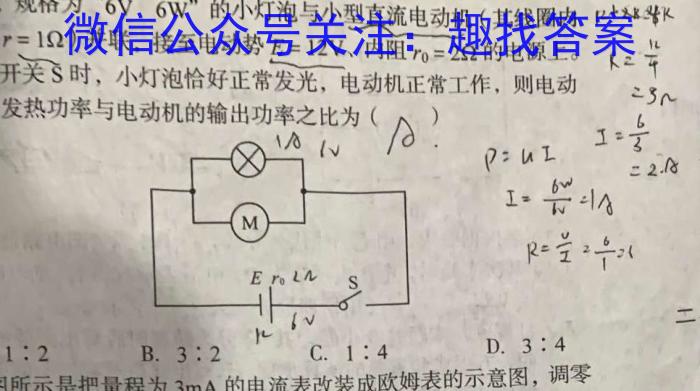 规格为"6V 6W"的小灯泡与小型直流电动机(其线圈内
r=1Ω
微信公众号关注：趣找答案
r₀=2Ω的电源上。
开关S时，小灯泡恰好正常发光，电动机正常工作，则电动
发热功率与电动机的输出功率之比为（ A ）
R=12/4
=3Ω
I=6/3
=2A
P=UI
I=6W/6V=1A
R=U/I=6/1=6
1A 6V
M
E r₀ 2Ω S
6V
二
1∶2 B. 3∶2 C. 1∶4 D. 3∶4
图所示是把量程为3mA的电流表改装成欧姆表的示意图，调零